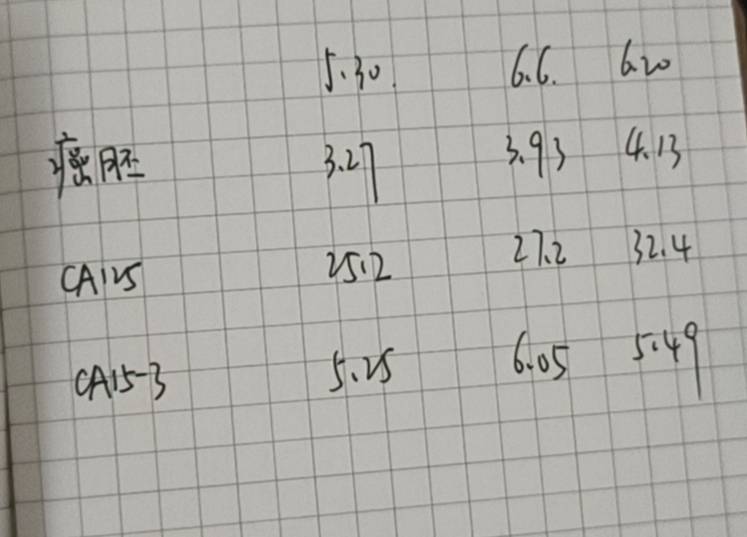 5.30. 6.6. 6.20
癌胚 3.27 3.93 4.13
CA125 25.2 27.2 32.4
CA15-3 5.25 6.05 5.49